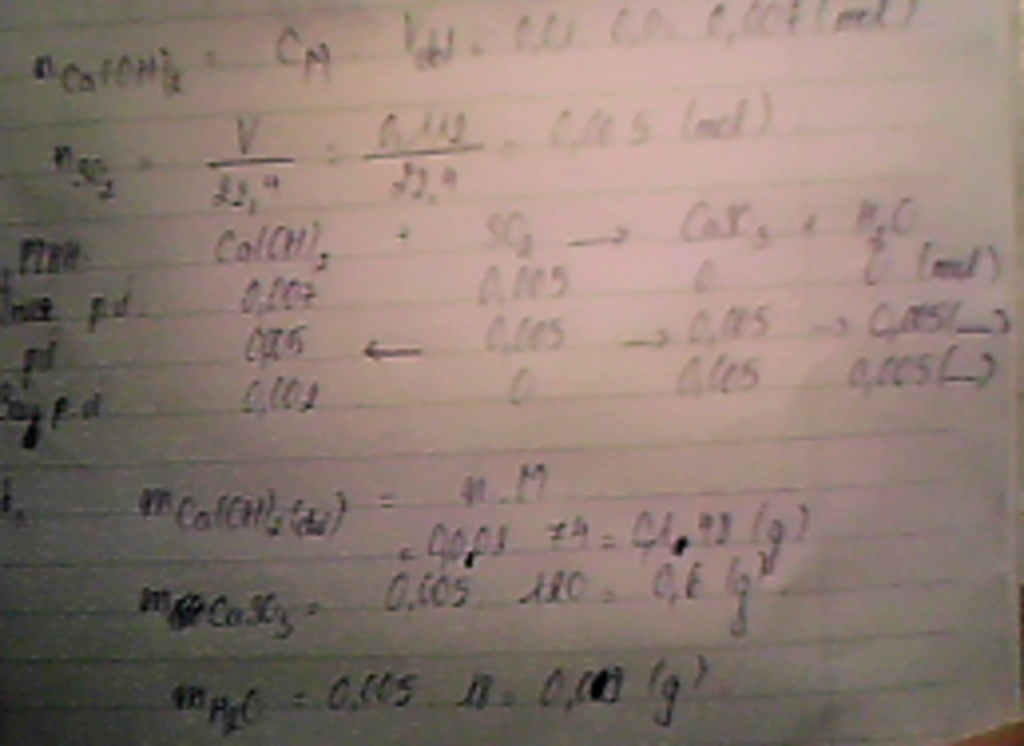 n Ca(OH)2 = CM . Vdd = 0,01 . 0,7 = 0,007 (mol)
n SO2 = V / 22,4 = 0,112 / 22,4 = 0,005 (mol)
PTHH: Ca(OH)2 + SO2 → CaSO3 + H2O
Trước p.ư 0,007 0,005 0 0 (mol)
pư 0,005 ← 0,005 → 0,005 → 0,005
Sau p.ư 0,002 0 0,005 0,005
m Ca(OH)2 (dư) = n . M
74 = (g)
m CaSO3 = 0,005 . 120 = 0,6 (g)
m H2O = 0,005 . 18 = 0,09 (g)